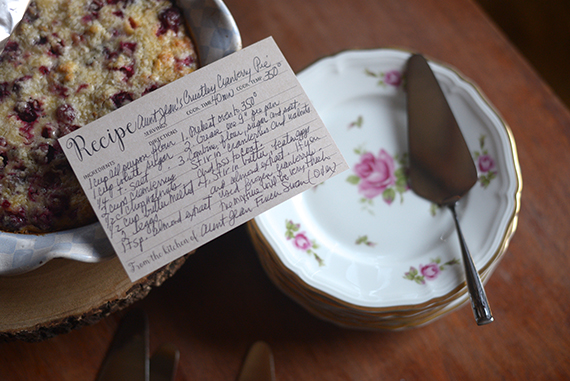 Recipe Aunt Jean's Crustless Cranberry Pie
SERVINGS COOK TIME 40min COOK TEMP. 350°
INGREDIENTS DIRECTIONS
1 cup all purpose flour 1. Preheat oven to 350°
1 cup white sugar 2. Grease one 9" pie pan
1/4 t. salt 3. Combine flour, sugar and salt,
2 cups cranberries Stir in cranberries and walnuts
1/2 c. walnuts and toss to coat.
1/2 cup butter melted 4. Stir in butter, beaten eggs
2 eggs and almond extract. If you
1 tsp. almond extract used frozen cranberries
the mixture will be very thick
From the kitchen of Aunt Jean